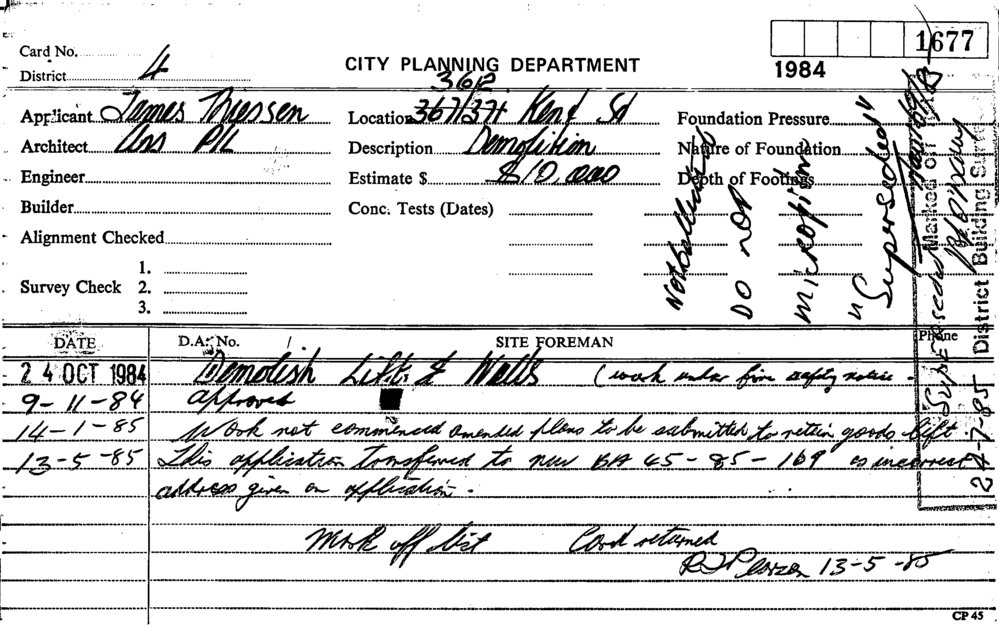 1677
Card No.
District 4
CITY PLANNING DEPARTMENT
1984
362
Applicant James
Location 367/371 Kent St
Foundation Pressure
Architect P/L
Description Demolition
Nature of Foundation
Engineer
Estimate $ $10,000
Depth of Footings
Builder
Conc. Tests (Dates)
Alignment Checked
1.
Survey Check 2.
3.
DO NOT
Microfilm
"Superseded"
Marked Off
District Building
24-7-85
DATE
D.A. No. /
SITE FOREMAN
Phone
24 OCT 1984 Demolish Lift & Walls (work under fire safety notice
9-11-84 approved
14-1-85 Work not commenced amended plans to be submitted to retain goods lift
13-5-85 This application transferred to new BA 45-85-169 as incorrect
address given on application.
Mark off list Card returned
13-5-85
CP 45